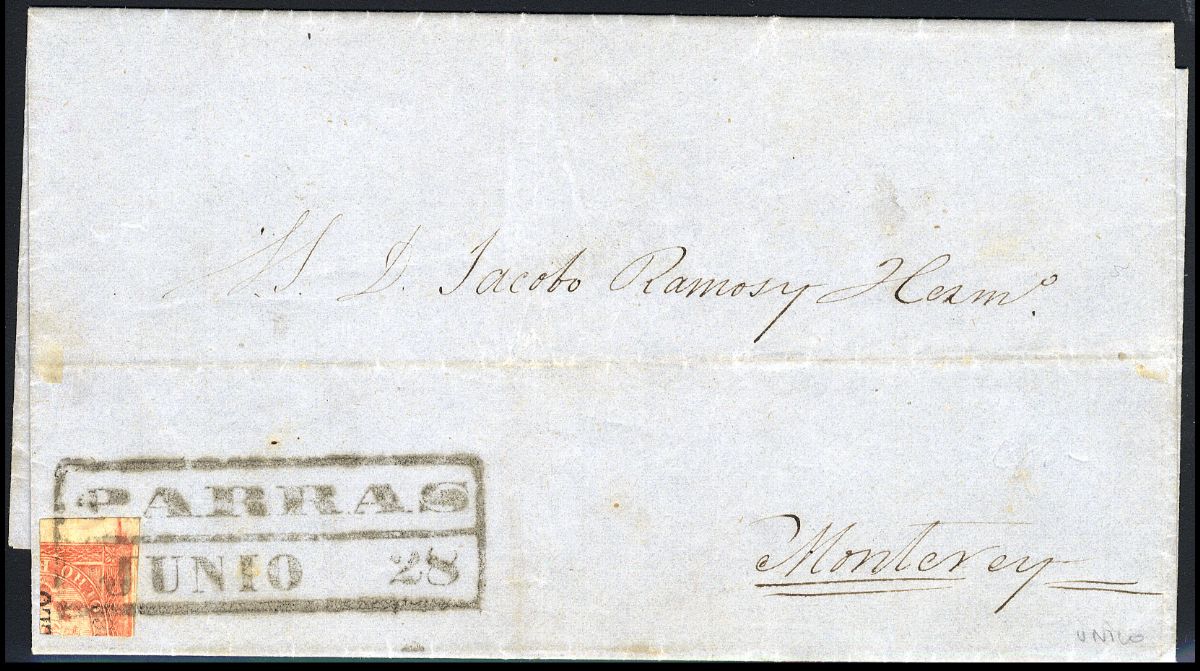 S. S. D. Jacobo Ramos y Hermº.
PARRAS
JUNIO 28
Monterey
UNICO